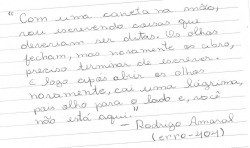 "Com uma caneta na mão,
vou escrevendo coisas que
deveriam ser ditas. Os olhos
fecham, mas novamente os abro,
preciso terminar de escrever.
E logo após abrir os olhos
novamente, cai uma lágrima,
pois olho para o lado e, você
não está aqui."
- Rodrigo Amaral
(erro-404)